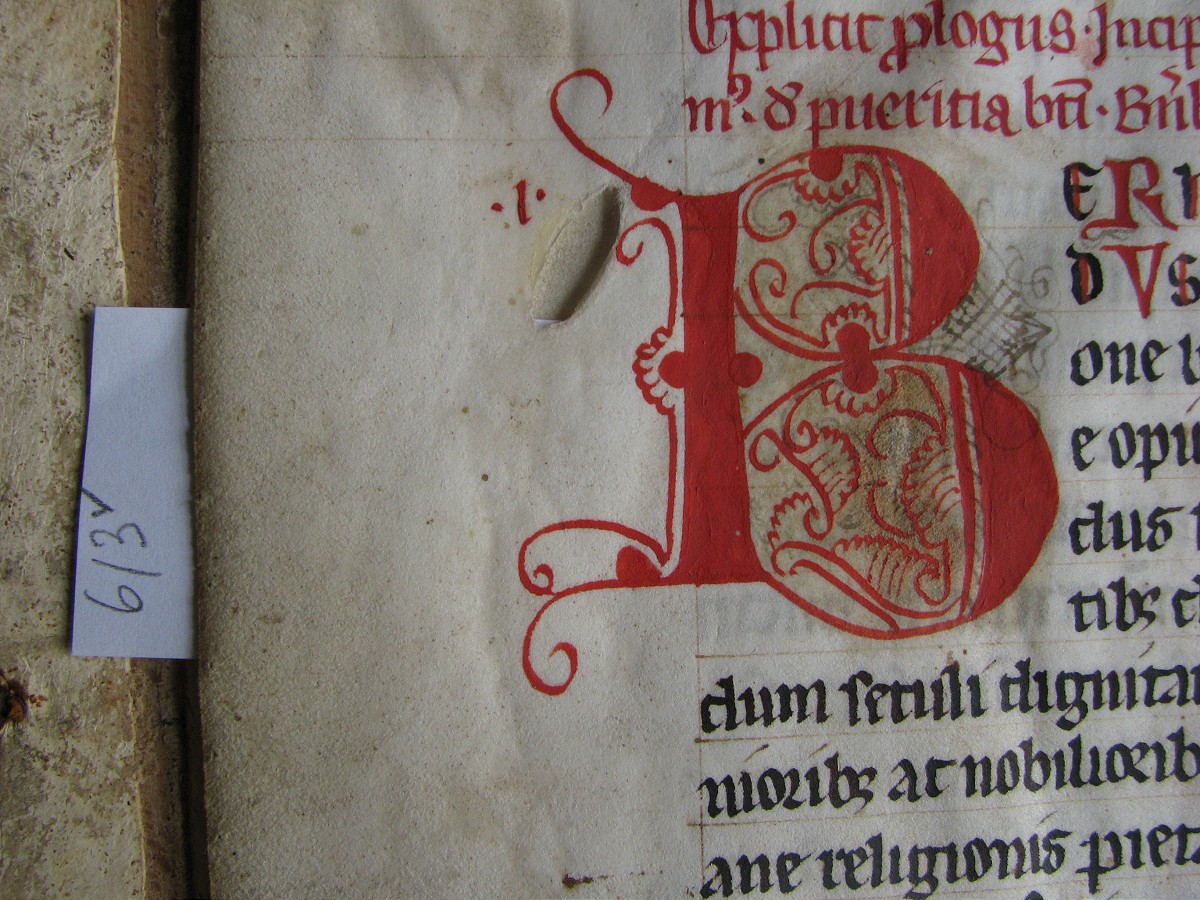 Explicit ꝓlogus · Incip
mꝰ · de pueritia bt̄i · Br̄n
·1·
B ERN
DVS
one
e opu
clus
tibꝫ
dum seculi dignita
nioribꝫ at nobilioribꝫ
ane religionis pieta
6/3v